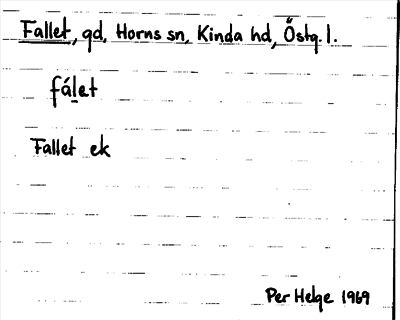 Fallet, gd, Horns sn, Kinda hd, Östg. l.
fá̱let
Fallet ek
Per Helge 1969